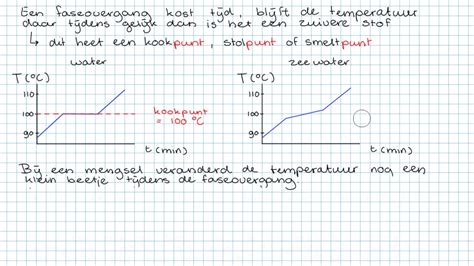 Een faseovergang kost tijd, blijft de temperatuur
daar tijdens gelijk dan is het een zuivere stof
↳ dit heet een kookpunt, stolpunt of smeltpunt
water
zee water
T (°C)
110
100
90
kookpunt
= 100 °C
t (min)
T (°C)
110
100
90
t (min)
Bij een mengsel veranderd de temperatuur nog een
klein beetje tijdens de faseovergang.